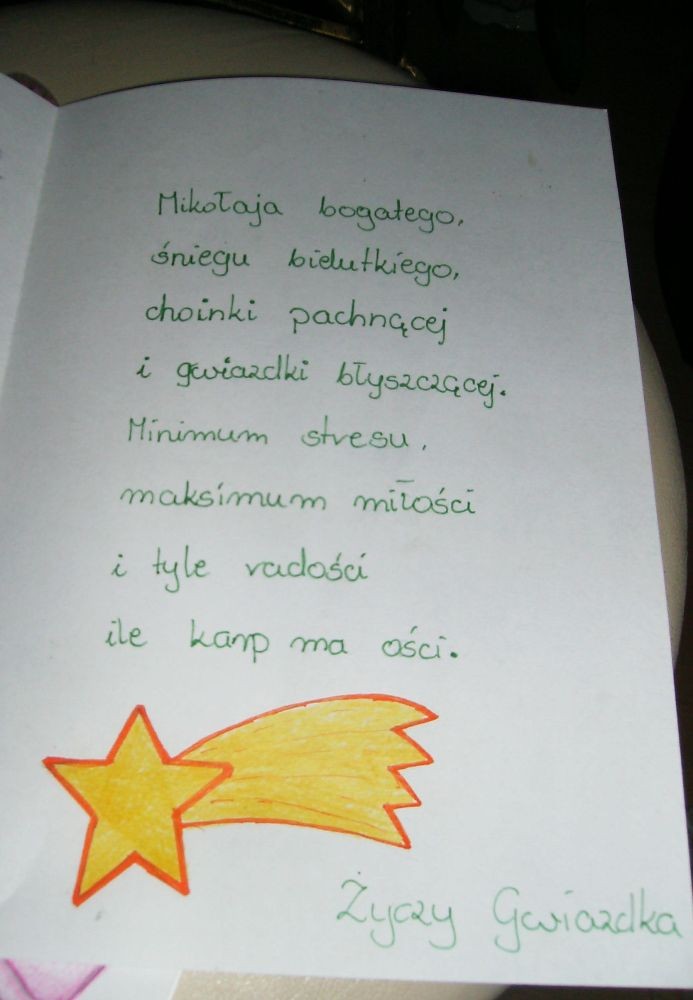 Mikołaja bogatego,
śniegu bielutkiego,
choinki pachnącej
i gwiazdki błyszczącej.
Minimum stresu,
maksimum miłości
i tyle radości
ile karp ma ości.
Życzy Gwiazdka